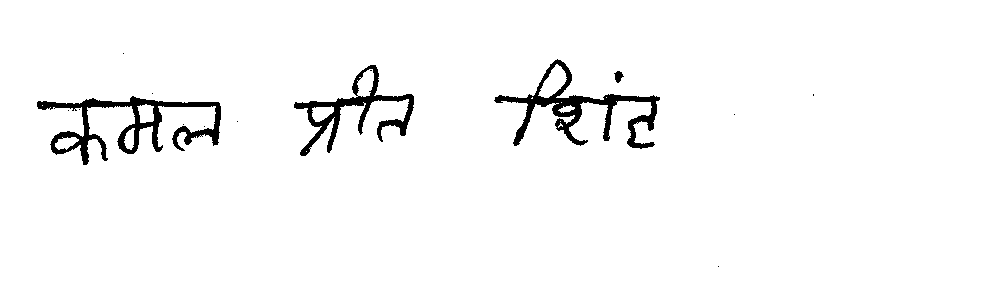 कमल प्रीत शिंह